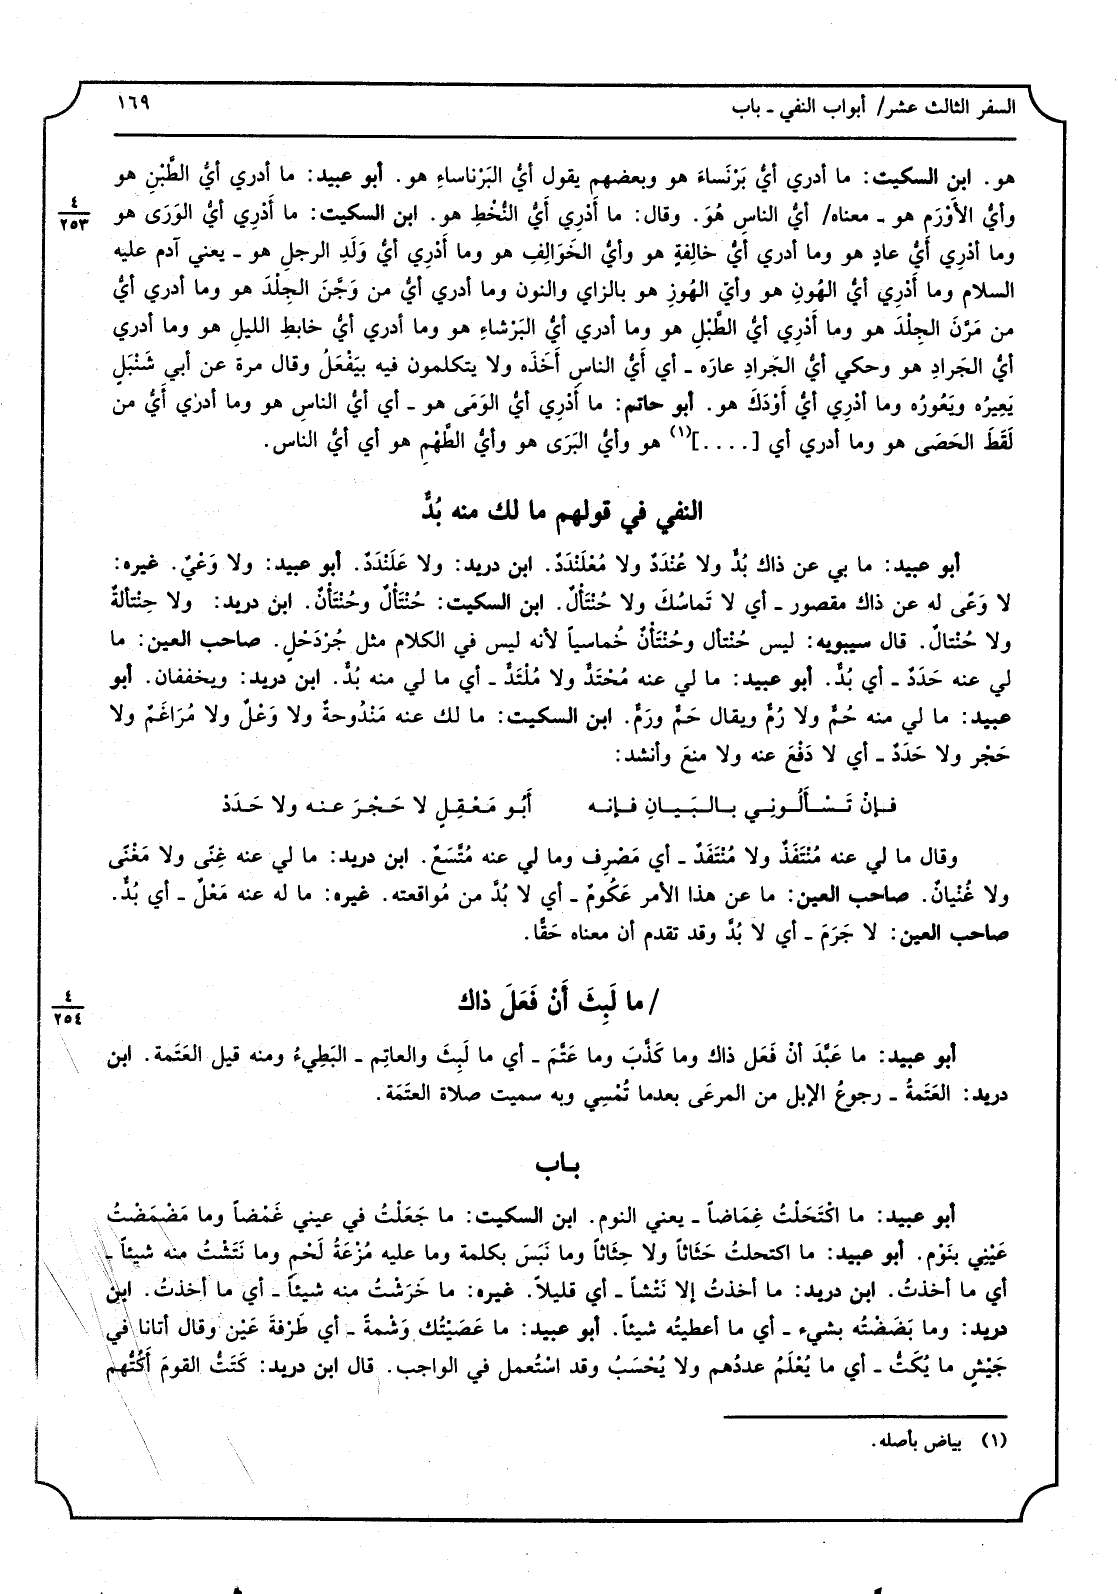 السفر الثالث عشر/ أبواب النفي ـ باب
١٦٩
هو. ابن السكيت: ما أدري أيُّ بَرْنَساءَ هو وبعضهم يقول أيُّ البَرْناساءِ هو. أبو عبيد: ما أدري أيُّ الطَّبْنِ هو
٤
٢٥٣
وأيُّ الأَوْرَم هو ـ معناه/ أيُّ الناسِ هُوَ. وقال: ما أَدْرِي أَيُّ النُّخْطِ هو. ابن السكيت: ما أَدْرِي أيُّ الوَرَى هو
وما أدْرِي أَيُّ عادٍ هو وما أدري أيُّ خالِفةٍ هو وأيُّ الخَوَالِفِ هو وما أَدْرِي أيُّ وَلَدِ الرجلِ هو ـ يعني آدم عليه
السلام وما أَدْرِي أيُّ الهُونِ هو وأيّ الهُوزِ هو بالزاي والنون وما أدري أيُّ من وَجَّنَ الجِلْدَ هو وما أدري أيُّ
من مَرَّنَ الجِلْدَ هو وما أَدْرِي أيُّ الطَّبْلِ هو وما أدري أيُّ البَرْشاءِ هو وما أدري أيُّ خابطِ الليلِ هو وما أدري
أيُّ الجَرادِ هو وحكي أيُّ الجَرادِ عارَه ـ أي أَيُّ الناسِ أَخَذَه ولا يتكلمون فيه بيَفْعَلُ وقال مرة عن أبي شَنْبَلٍ
يَعِيرُه ويَعُورُه وما أدْرِي أيُّ أَوْدَكَ هو. أبو حاتم: ما أَدْرِي أيُّ الوَمَى هو ـ أي أيُّ الناسِ هو وما أدري أَيُّ من
لَقَطَ الحَصَى هو وما أدري أي [....](١) هو وأيُّ البَرَى هو وأيُّ الطَّهْمِ هو أي أيُّ الناس.
النفي في قولهم ما لك منه بُدٌّ
أبو عبيد: ما بي عن ذاك بُدٌّ ولا عُنْدَدٌ ولا مُعْلَنْدَدٌ. ابن دريد: ولا عَلَنْدَدٌ. أبو عبيد: ولا وَعْيٌ. غيره:
لا وَعًى له عن ذاك مقصور ـ أي لا تَماسُكَ ولا حُنْتَأْلٌ. ابن السكيت: حُنْتَأْلٌ وحُنْتَأْنٌ. ابن دريد: ولا حِنْتألةٌ
ولا حُنْتالٌ. قال سيبويه: ليس حُنْتأل وحُنْتَأْنٌ خُماسياً لأنه ليس في الكلام مثل جُرْدَحْلٍ. صاحب العين: ما
لي عنه حَدَدٌ ـ أي بُدٌّ. أبو عبيد: ما لي عنه مُحْتَدٌّ ولا مُلْتَدٌّ ـ أي ما لي منه بُدٌّ. ابن دريد: ويخففان. أبو
عبيد: ما لي منه حُمٌّ ولا رُمٌّ ويقال حَمٌّ ورَمٌّ. ابن السكيت: ما لك عنه مَنْدُوحةٌ ولا وَعْلٌ ولا مُرَاغَمٌ ولا
حَجْر ولا حَدَدٌ ـ أي لا دَفْعَ عنه ولا منعَ وأنشد:
فـإنْ تَـسْـأَلُـونِـي بـالـبَـيـانِ فـإنـه أَبُـو مَـعْـقِـلٍ لا حَـجْـرَ عـنـه ولا حَـدَدْ
وقال ما لي عنه مُنْتَفَذٌ ولا مُنْتَفَدٌ ـ أي مَصْرِف وما لي عنه مُتَّسَعٌ. ابن دريد: ما لي عنه غِنًى ولا مَغْنًى
ولا غُنْيانٌ. صاحب العين: ما عن هذا الأمر عَكُومٌ ـ أي لا بُدَّ من مُواقعته. غيره: ما له عنه مَعْلٌ ـ أي بُدٌّ.
صاحب العين: لا جَرَمَ ـ أي لا بُدَّ وقد تقدم أن معناه حَقًّا.
٤
٢٥٤
/ ما لَبِثَ أَنْ فَعَلَ ذاك
أبو عبيد: ما عَبَّدَ أنْ فَعَل ذاك وما كَذَّبَ وما عَتَّمَ ـ أي ما لَبِثَ والعاتِم ـ البَطِيءُ ومنه قيل العَتَمة. ابن
دريد: العَتَمةُ ـ رجوعُ الإبل من المرعَى بعدما تُمْسِي وبه سميت صلاة العتَمَة.
بـاب
أبو عبيد: ما اكْتَحَلْتُ غِمَاضاً ـ يعني النوم. ابن السكيت: ما جَعَلْتُ في عيني غَمْضاً وما مَضْمَضْتُ
عَيْنِي بنَوْم. أبو عبيد: ما اكتحلتُ حَثَاثاً ولا حِثَاثاً وما نَبَسَ بكلمة وما عليه مُزْعَةُ لَحْم وما نَتَشْتُ منه شيئاً ـ
أي ما أخذتُ. ابن دريد: ما أخذتُ إلا نَتْشاً ـ أي قليلاً. غيره: ما خَرَشْتُ منه شيئاً ـ أي ما أخذتُ. ابن
دريد: وما بَضَضْتُه بشيء ـ أي ما أعطيته شيئاً. أبو عبيد: ما عَصَيْتُك وَشْمةً ـ أي طَرْفةَ عَيْن وقال أتانا في
جَيْشٍ ما يُكَتُّ ـ أي ما يُعْلَمُ عددُهم ولا يُحْسَبُ وقد اسْتُعمل في الواجب. قال ابن دريد: كَتَتُّ القومَ أَكُتُّهم
(١) بياض بأصله.